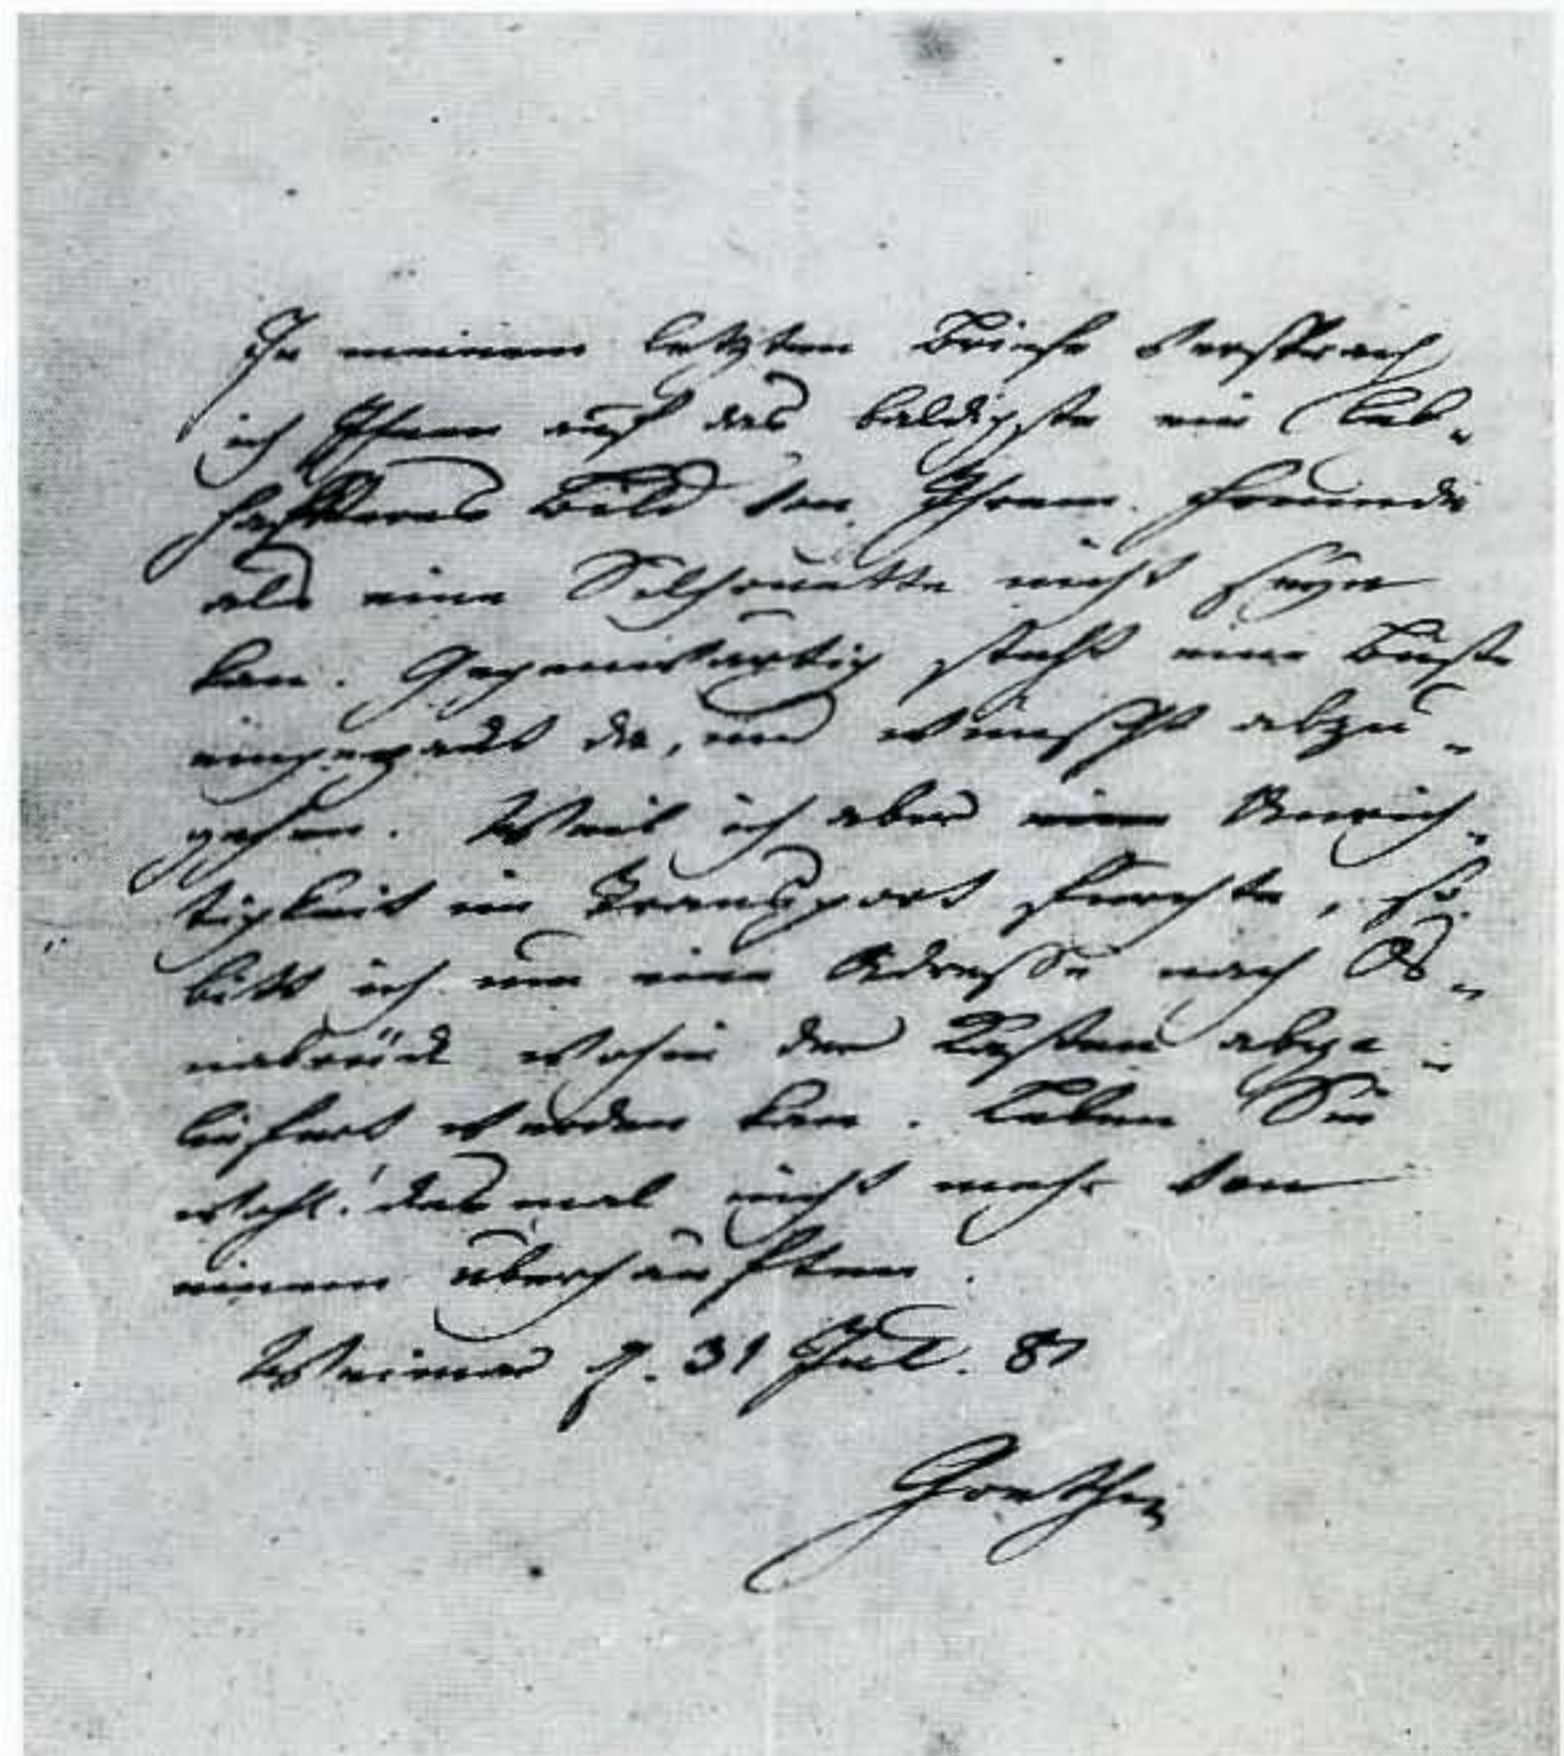 In meinem letzten Briefe versprach
ich Ihnen auf das baldigste ein leb-
hafteres Bild von Ihrem Freunde
als eine Silhouette nicht seyn
kan. Gegenwärtig steht eine Büste
eingepackt da, und wünscht abzu-
gehen. Weil ich aber eine Unrich-
tigkeit im Transport fürchte, so
bitt ich um eine Adresse nach Os-
nabrück wohin der Kasten abge-
liefert werden kan. Leben Sie
wohl! dasmal nicht mehr von
einem überhäuften.
Weimar d. 31 Jul. 81
Goethe